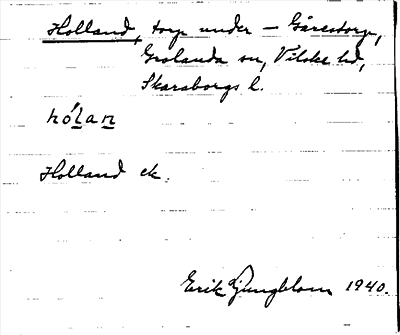 Holland, torp under – Gårestorp,
Grolanda sn, Vilske hd,
Skaraborgs l.
hólan
Holland ek.
Erik Ljungblom 1940.